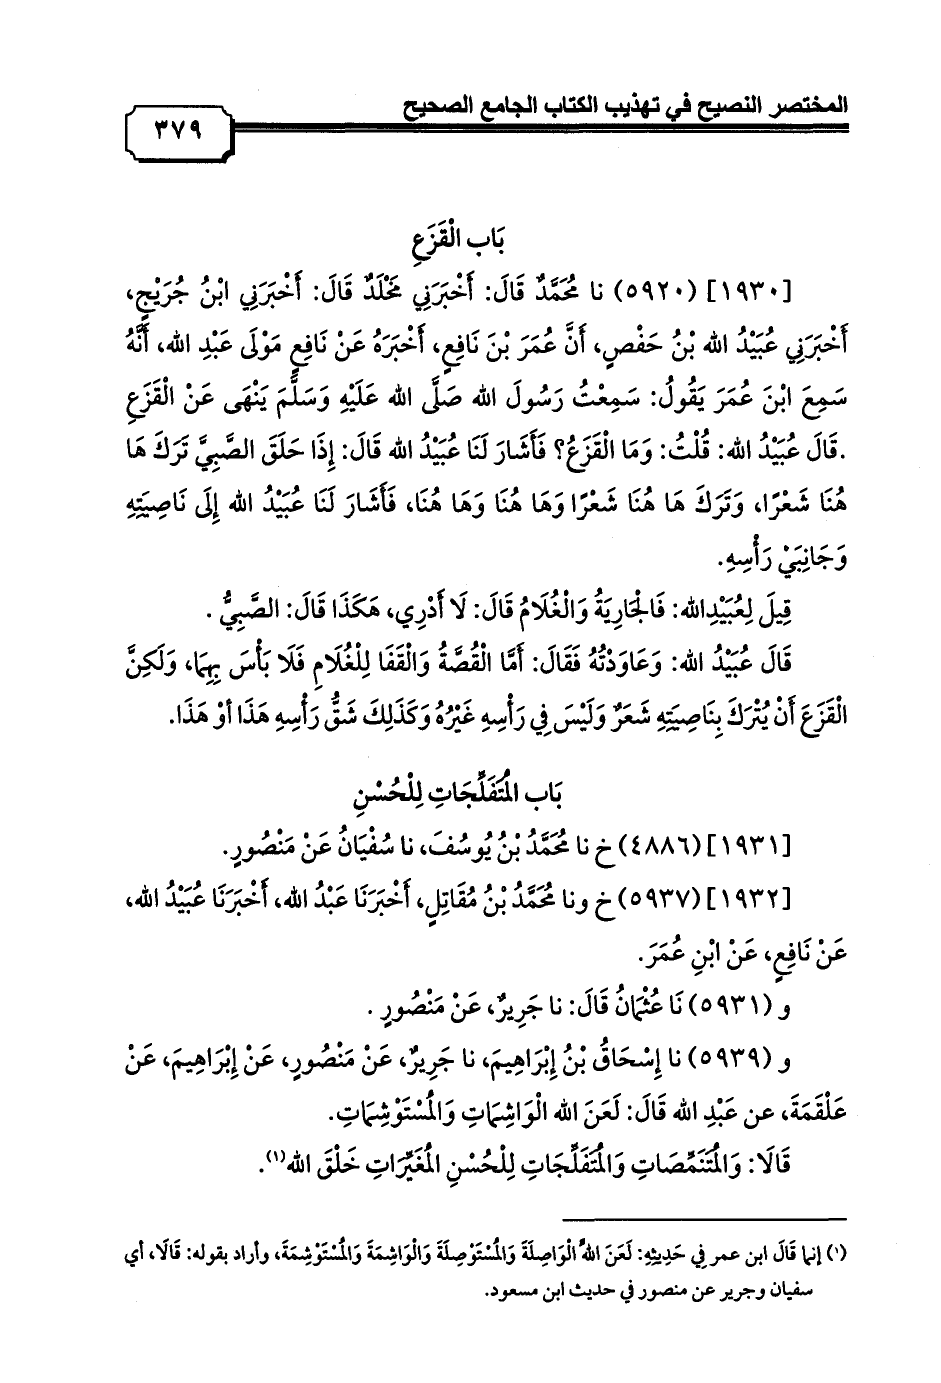 المختصر النصيح في تهذيب الكتاب الجامع الصحيح
٣٧٩
بَاب الْقَزَعِ
[١٩٣٠] (٥٩٢٠) نا مُحَمَّدٌ قَالَ: أَخْبَرَنِي مَخْلَدٌ قَالَ: أَخْبَرَنِي ابْنُ جُرَيْجٍ،
أَخْبَرَنِي عُبَيْدُ الله بْنُ حَفْصٍ، أَنَّ عُمَرَ بْنَ نَافِعٍ، أَخْبَرَهُ عَنْ نَافِعٍ مَوْلَى عَبْدِ الله، أَنَّهُ
سَمِعَ ابْنَ عُمَرَ يَقُولُ: سَمِعْتُ رَسُولَ الله صَلَّى الله عَلَيْهِ وَسَلَّمَ يَنْهَى عَنْ الْقَزَعِ
.قَالَ عُبَيْدُ الله: قُلْتُ: وَمَا الْقَزَعُ؟ فَأَشَارَ لَنَا عُبَيْدُ الله قَالَ: إِذَا حَلَقَ الصَّبِيَّ تَرَكَ هَا
هُنَا شَعْرًا، وَتَرَكَ هَا هُنَا شَعْرًا وَهَا هُنَا وَهَا هُنَا، فَأَشَارَ لَنَا عُبَيْدُ الله إِلَى نَاصِيَتِهِ
وَجَانِبَيْ رَأْسِهِ.
قِيلَ لِعُبَيْدِالله: فَالْجَارِيَةُ وَالْغُلَامُ قَالَ: لَا أَدْرِي، هَكَذَا قَالَ: الصَّبِيُّ .
قَالَ عُبَيْدُ الله: وَعَاوَدْتُهُ فَقَالَ: أَمَّا الْقُصَّةُ وَالْقَفَا لِلْغُلَامِ فَلَا بَأْسَ بِهِمَا، وَلَكِنَّ
الْقَزَعَ أَنْ يُتْرَكَ بِنَاصِيَتِهِ شَعَرٌ وَلَيْسَ فِي رَأْسِهِ غَيْرُهُ وَكَذَلِكَ شَقُّ رَأْسِهِ هَذَا أوْ هَذَا.
بَاب الْمُتَفَلِّجَاتِ لِلْحُسْنِ
[١٩٣١] (٤٨٨٦) خ نا مُحَمَّدُ بْنُ يُوسُفَ، نا سُفْيَانُ عَنْ مَنْصُورٍ.
[١٩٣٢] (٥٩٣٧) خ ونا مُحَمَّدُ بْنُ مُقَاتِلٍ، أَخْبَرَنَا عَبْدُ الله، أَخْبَرَنَا عُبَيْدُ الله،
عَنْ نَافِعٍ، عَنْ ابْنِ عُمَرَ.
و (٥٩٣١) نَا عُثْمَانُ قَالَ: نا جَرِيرٌ، عَنْ مَنْصُورٍ .
و (٥٩٣٩) نا إِسْحَاقُ بْنُ إِبْرَاهِيمَ، نا جَرِيرٌ، عَنْ مَنْصُورٍ، عَنْ إِبْرَاهِيمَ، عَنْ
عَلْقَمَةَ، عن عَبْدِ الله قَالَ: لَعَنَ الله الْوَاشِمَاتِ وَالْمُسْتَوْشِمَاتِ.
قَالَا: وَالْمُتَنَمِّصَاتِ وَالْمُتَفَلِّجَاتِ لِلْحُسْنِ الْمُغَيِّرَاتِ خَلْقَ الله(١).
(١) إنما قَالَ ابن عمر فِي حَدِيثِهِ: لَعَنَ اللهُ الْوَاصِلَةَ وَالْمُسْتَوْصِلَةَ وَالْوَاشِمَةَ وَالْمُسْتَوْشِمَةَ، وأراد بقوله: قَالَا، أي
سفيان وجرير عن منصور في حديث ابن مسعود.